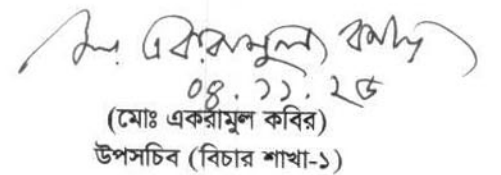 একরামুল
০৪.১১.২৫
(মোঃ একরামুল কবির)
উপসচিব (বিচার শাখা-১)